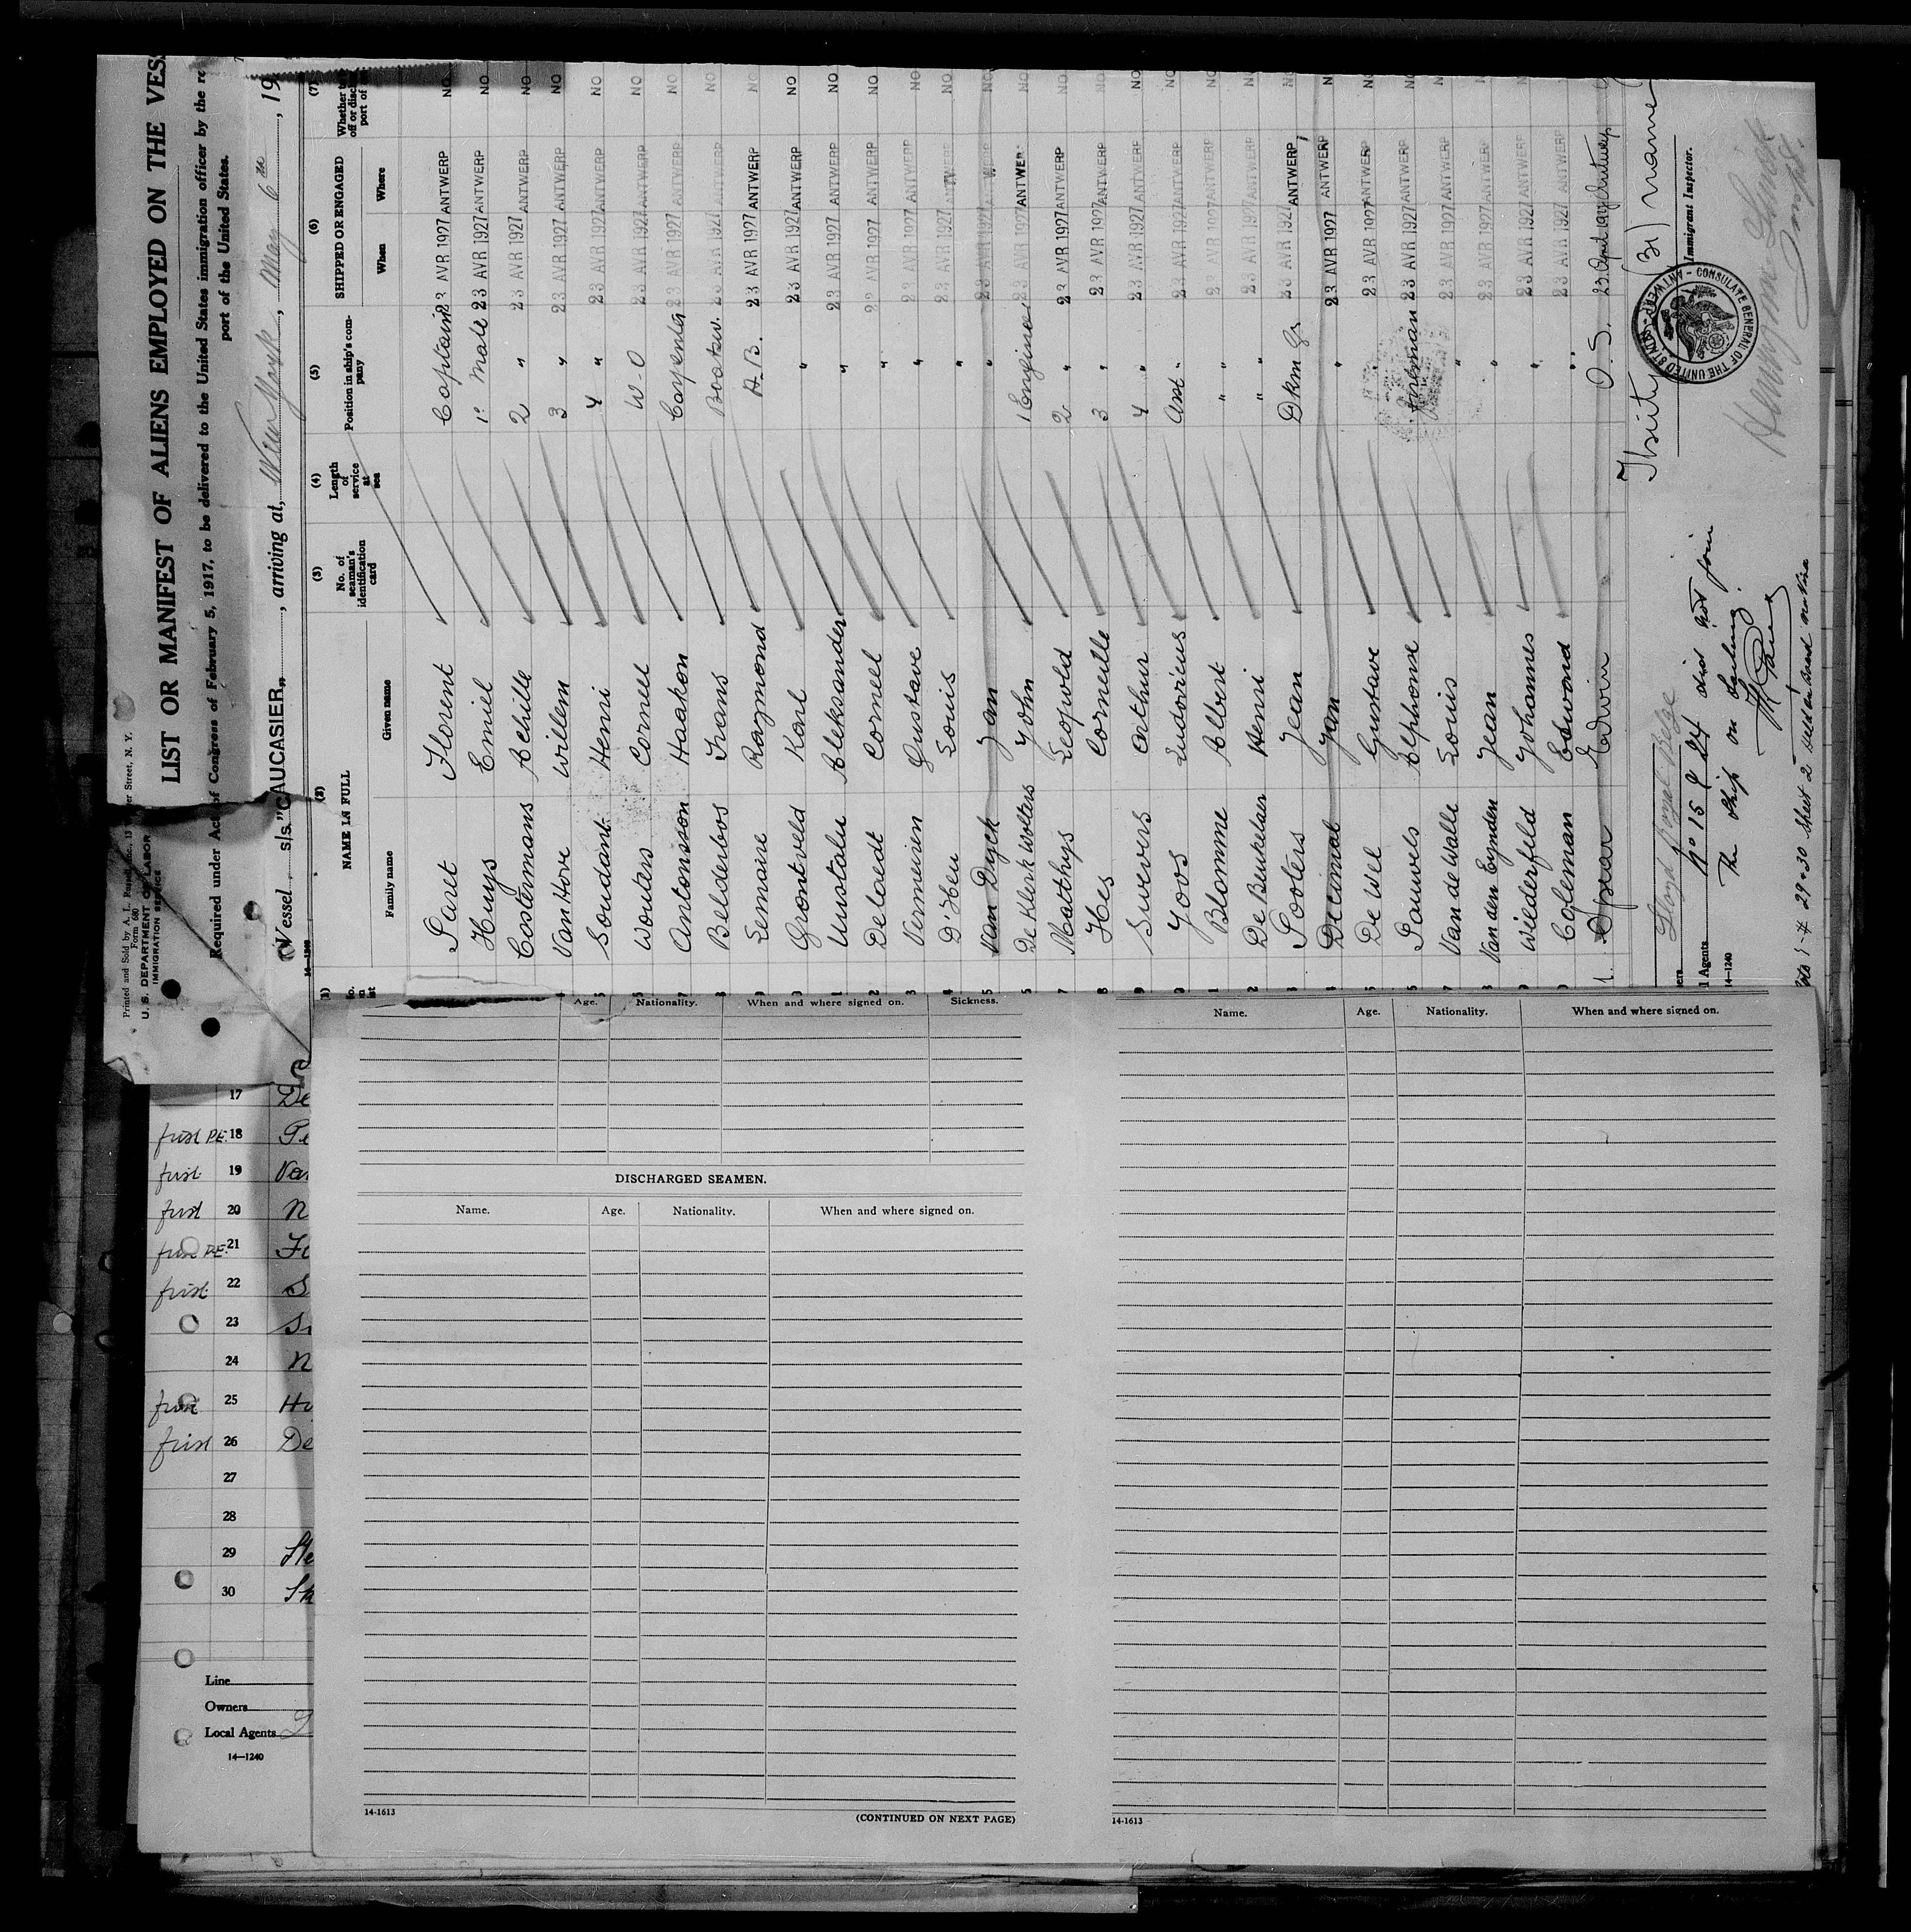 Printed and Sold by A. L. Russell, Inc., 13 Street, N. Y.
Form 680
U. S. DEPARTMENT OF LABOR
IMMIGRATION SERVICE
LIST OR MANIFEST OF ALIENS EMPLOYED ON THE VES
Required under Act of Congress of February 5, 1917, to be delivered to the United States immigration officer by the re
port of the United States.
Vessel s/s. "CAUCASIER", arriving at, New York, May 6th, 19
(1) (2) (3) (4) (5) (6) (7)
NAME IN FULL No. of seaman's identification card Length of service at sea Position in ship's company SHIPPED OR ENGAGED Whether
Family name Given name When Where
Paret Florent Captain 23 AVR 1927 ANTWERP NO
Huys Emiel 1° Mate 23 AVR 1927 ANTWERP NO
Costermans Achille 2 " 23 AVR 1927 ANTWERP NO
4 Van Hove Willem 3 " 23 AVR 1927 ANTWERP NO
5 Soudant Henri 4 " 23 AVR 1927 ANTWERP NO
6 Wouters Corneel W-O 23 AVR 1927 ANTWERP NO
7 Antonsson Haakon Carpenter 23 AVR 1927 ANTWERP NO
8 Belderbos Frans Boatsw. 23 AVR 1927 ANTWERP NO
9 Lemaire Raymond A-B. 23 AVR 1927 ANTWERP NO
0 Grontveld Karl " 23 AVR 1927 ANTWERP NO
1 Uustalu Aleksander " 23 AVR 1927 ANTWERP NO
2 Delaedt Corneel " 23 AVR 1927 ANTWERP NO
3 Vermeiren Gustave " 23 AVR 1927 ANTWERP NO
4 D'Heu Louis " 23 AVR 1927 ANTWERP NO
5 Van Dyck Jan " 23 AVR 1927 NO
6 De Klerk Wolters John 1 Engineer 23 AVR 1927 ANTWERP NO
7 Matthys Leopold 2 " 23 AVR 1927 ANTWERP NO
8 Hes Corneille 3 " 23 AVR 1927 ANTWERP NO
9 Suvers Arthur 4 " 23 AVR 1927 ANTWERP NO
0 Joos Ludovicus Asst " 23 AVR 1927 ANTWERP NO
1 Blomme Albert " " 23 AVR 1927 ANTWERP NO
2 De Beukelaer Henri " " 23 AVR 1927 ANTWERP NO
3 Sooters Jean Dkm Gr 23 AVR 1927 ANTWERP NO
4 Decimal Jan " 23 AVR 1927 ANTWERP N
5 De Wel Gustave " 23 AVR 1927 ANTWERP NO
6 Pauwels Alphonse Fireman 23 AVR 1927 ANTWERP NO
7 Van de Walle Louis " 23 AVR 1927 ANTWERP N
8 Van den Eynden Jean " 23 AVR 1927 ANTWERP N
9 Wilderfield Johannes " 23 AVR 1927 ANTWERP N
0 Coleman Edward " 23 AVR 1927 ANTWERP NO
1. Spear Edwin O. S. 23 April 1927 Antwerp
Thirty (31) names
Immigrant Inspector.
AMERICAN CONSULATE GENERAL OF THE UNITED STATES - ANTWERP
Lloyd Royal Belge
Agents
14—1240
No 15 & 24 did not join
The ship on sailing.
29 & 30 Sheet 2
Age. Nationality. When and where signed on. Sickness.
DISCHARGED SEAMEN.
Name. Age. Nationality. When and where signed on.
14-1613
(CONTINUED ON NEXT PAGE)
Name. Age. Nationality. When and where signed on.
14-1613
17 De
first P.E. 18 Pe
first 19 Van
first 20 N
first P.E. 21 Fe
first 22 S
23 Si
24 N
first 25 Hu
first 26 De
27
28
29 Ste
30 Sk
Line
Owners
Local Agents
14—1240